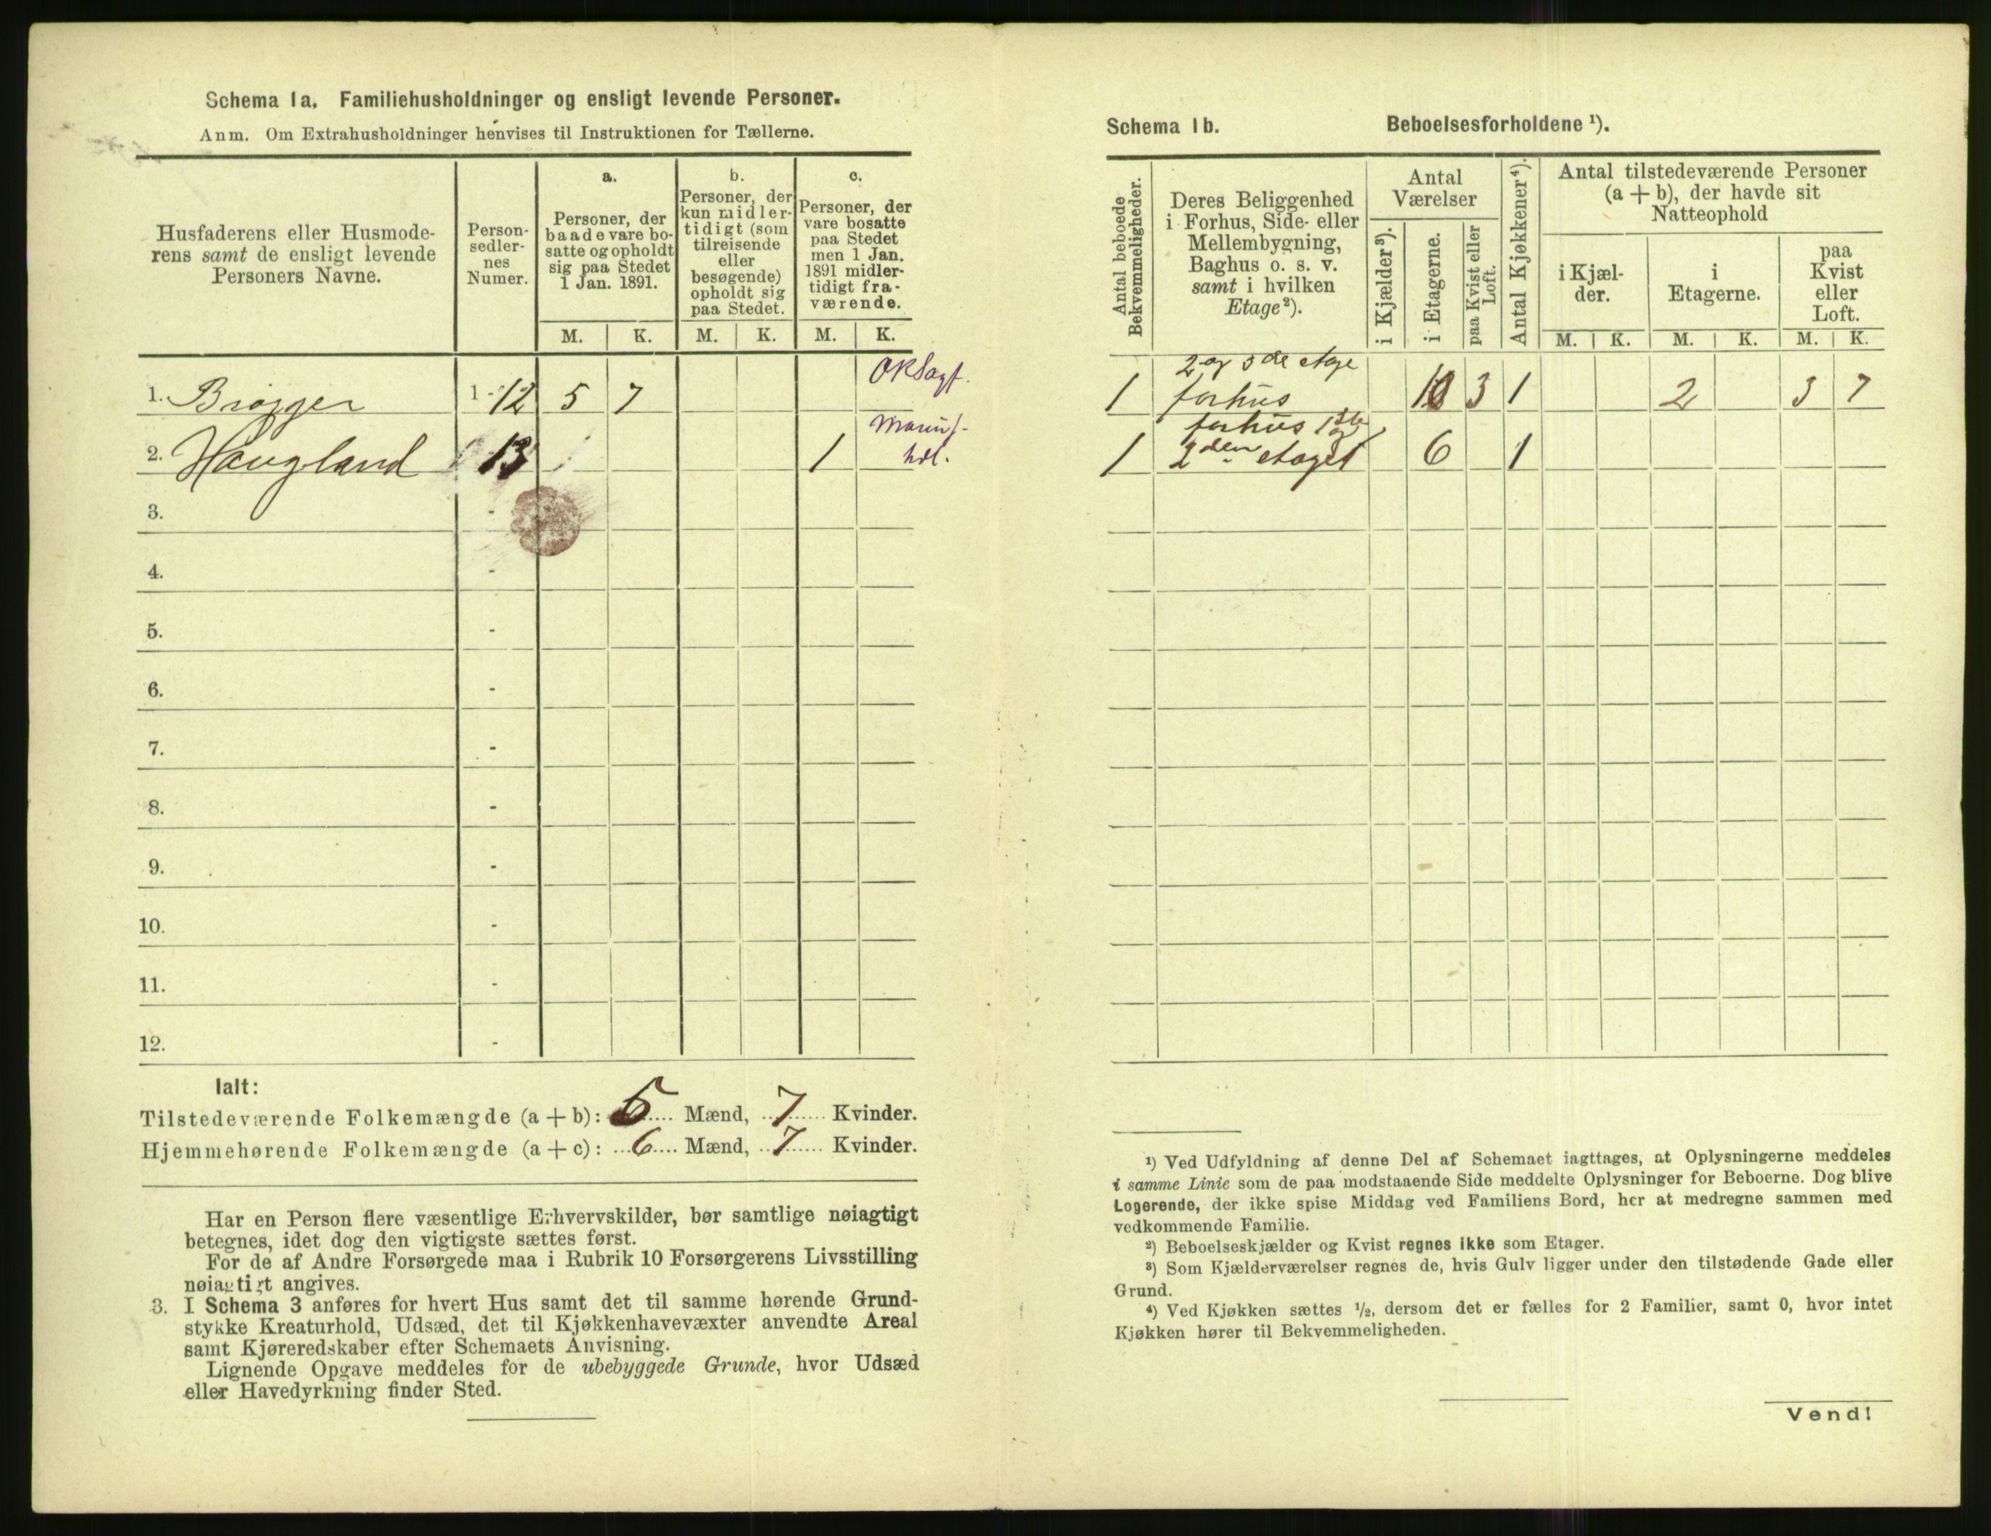 Schema 1a. Familiehusholdninger og ensligt levende Personer.
Anm. Om Extrahusholdninger henvises til Instruktionen for Tællerne.
Husfaderens eller Husmode-
rens samt de ensligt levende
Personers Navne.
Person-
sedler-
nes
Numer.
a.
Personer, der
baade vare bo-
satte og opholdt
sig paa Stedet
1 Jan. 1891.
b.
Personer, der
kun midler-
tidigt (som
tilreisende
eller
besøgende)
opholdt sig
paa Stedet.
c.
Personer, der
vare bosatte
paa Stedet
men 1 Jan.
1891 midler-
tidigt fra-
værende.
M. K. M. K. M. K.
1. Brøgger 1 - 12 5 7
2. Haugland 13 1
3. -
4. -
5. -
6. -
7. -
8. -
9. -
10. -
11. -
12. -
Ialt:
Tilstedeværende Folkemængde (a + b): 5 Mænd, 7 Kvinder.
Hjemmehørende Folkemængde (a + c): 6 Mænd, 7 Kvinder.
Har en Person flere væsentlige Erhvervskilder, bør samtlige nøiagtigt
betegnes, idet dog den vigtigste sættes først.
For de af Andre Forsørgede maa i Rubrik 10 Forsørgerens Livsstilling
nøiagtigt angives.
3. I Schema 3 anføres for hvert Hus samt det til samme hørende Grund-
stykke Kreaturhold, Udsæd, det til Kjøkkenhavevæxter anvendte Areal
samt Kjøreredskaber efter Schemaets Anvisning.
Lignende Opgave meddeles for de ubebyggede Grunde, hvor Udsæd
eller Havedyrkning finder Sted.
Schema 1b. Beboelsesforholdene ¹).
Antal beboede
Bekvemmeligheder.
Deres Beliggenhed
i Forhus, Side- eller
Mellembygning,
Baghus o. s. v.
samt i hvilken
Etage²).
Antal
Værelser
i Kjælder³).
i Etagerne.
paa Kvist eller
Loft.
Antal Kjøkkener⁴).
Antal tilstedeværende Personer
(a + b), der havde sit
Natteophold
i Kjæl-
der.
i
Etagerne.
paa
Kvist
eller
Loft.
M. K. M. K. M. K.
2 og 3de etage
1 forhus 10 3 1 2 3 7
forhus 1ste og
1 2den etaget 6 1
¹) Ved Udfyldning af denne Del af Schemaet iagttages, at Oplysningerne meddeles
i samme Linie som de paa modstaaende Side meddelte Oplysninger for Beboerne. Dog blive
Logerende, der ikke spise Middag ved Familiens Bord, her at medregne sammen med
vedkommende Familie.
²) Beboelseskjælder og Kvist regnes ikke som Etager.
³) Som Kjælderværelser regnes de, hvis Gulv ligger under den tilstødende Gade eller
Grund.
⁴) Ved Kjøkken sættes ½, dersom det er fælles for 2 Familier, samt 0, hvor intet
Kjøkken hører til Bekvemmeligheden.
Vend!